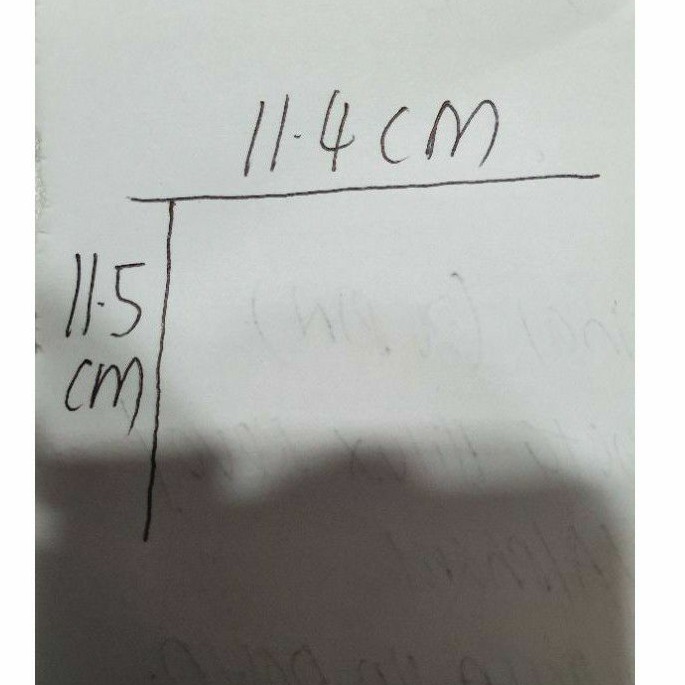 11.4 CM
11.5
CM